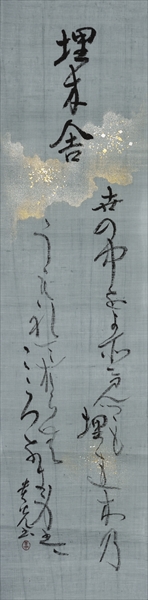 埋木舎
世の中をよそに見つゝも埋れ木乃
うもれておらむ
こころなき身は